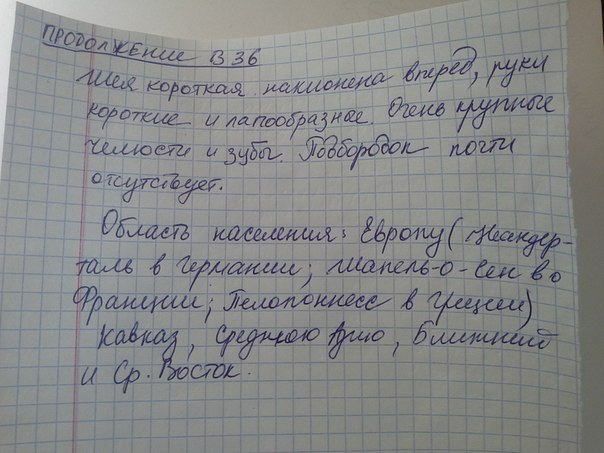 ПРОДОЛЖЕНИЕ В 36
Шея короткая наклонена вперед, руки
короткие и лапообразные. Очень крупные
челюсти и зубы. Подбородок почти
отсутствует.
Область населения: Европу (Неандер-
таль в Германии; Шапель-о-Сен во
Франции; Пелопоннесс в Греции)
Кавказ, Среднюю Азию, Ближний
и Ср. Восток.